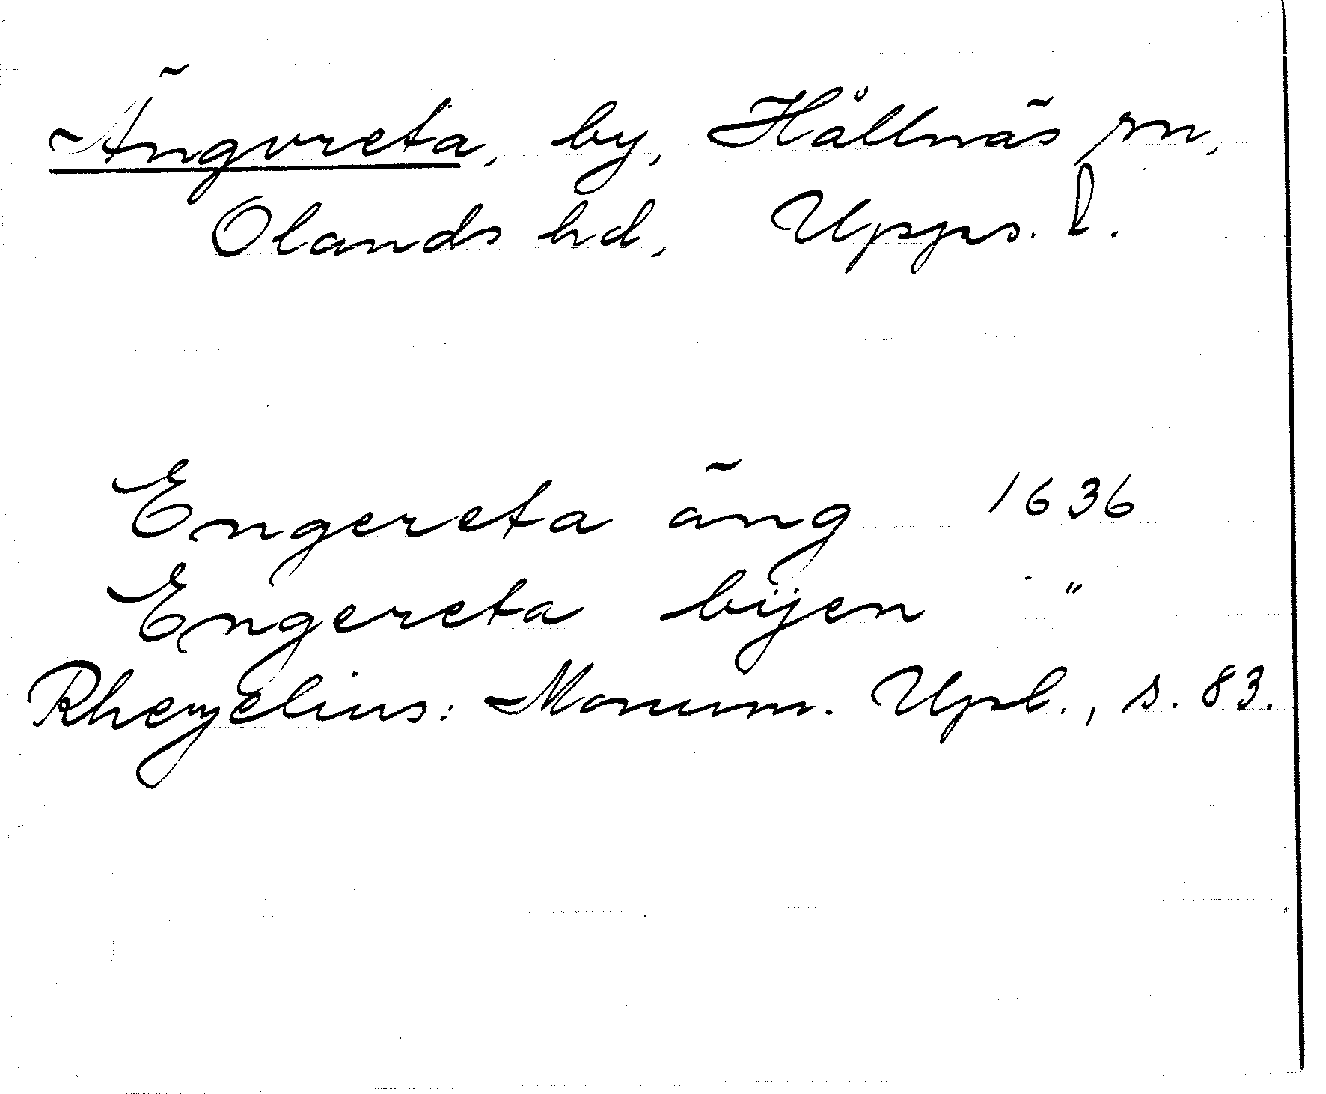 Ängvreta, by, Hållnäs sn,
Olands hd, Upps. l.
Engereta äng 1636
Engereta bÿen "
Rhezelius: Monum. Upl., s. 83.